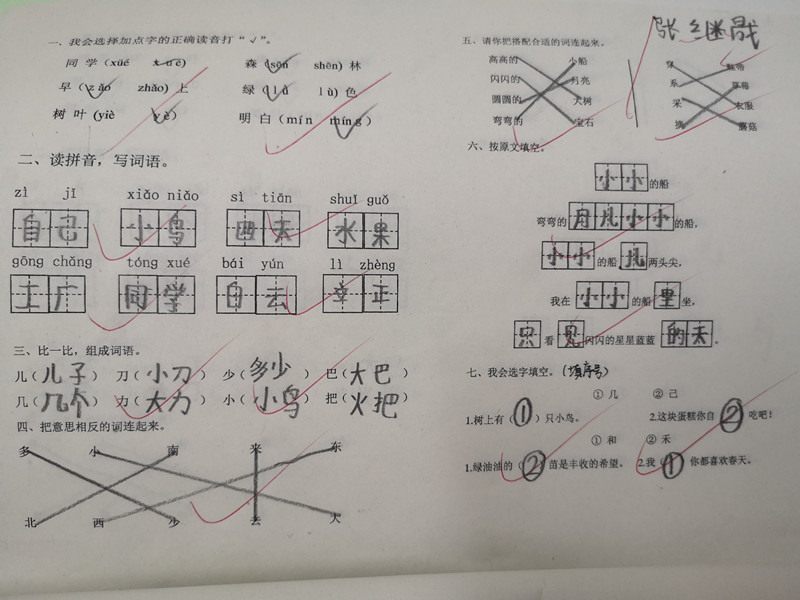 一、我会选择加点字的正确读音打“√”。
同 学（xüé xué） 森（sēn shēn）林
早（zǎo zhǎo）上 绿（lǜ lù）色
树 叶（yiè yè） 明 白（mín míng）
二、读拼音，写词语。
zì jǐ xiǎo niǎo sì tiān shuǐ guǒ
自己 小鸟 四天 水果
gōng chǎng tóng xué bái yún lì zhèng
工厂 同学 白云 立正
三、比一比，组成词语。
儿（儿子） 刀（小刀） 少（多少） 巴（大巴）
几（几个） 力（大力） 小（小鸟） 把（火把）
四、把意思相反的词连起来。
多 小 南 来 东
北 西 少 去 大
张继
五、请你把搭配合适的词连起来。
高高的 小船 穿
闪闪的 月亮 系 草莓
圆圆的 大树 采 衣服
弯弯的 宝石 摘 蘑菇
六、按原文填空。
小小的船
弯弯的月儿小小的船，
小小的船儿两头尖，
我在小小的船里坐，
只看见闪闪的星星蓝蓝的天。
七、我会选字填空。（填序号）
① 几 ② 己
1.树上有（①）只小鸟。 2.这块蛋糕你自②吃吧！
① 和 ② 禾
1.绿油油的（②）苗是丰收的希望。 2.我（①）你都喜欢春天。